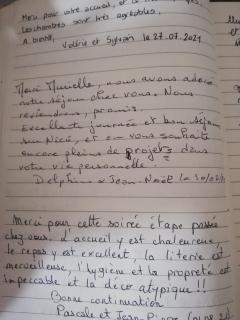 Merci pour votre accueil, et
les chambres sont très agréables.
A bientôt,
Valérie et Sylvain le 27.07.2021
Merci Murielle, nous avons adoré
notre séjour chez vous. Nous
reviendrons, promis.
Excellente journée et bon séjour
sur Nicé, et on vous souhaite
encore pleins de projets dans
votre vie personnelle
Delphine & Jean-Noël le
Merci pour cette soirée étape passée
chez vous. L'accueil y est chaleureux,
le repas y est excellent, la literie est
merveilleuse, l'hygiène et la propreté est
impeccable et la déco atypique !!
Bonne continuation
Pascale et Jean-Pierre